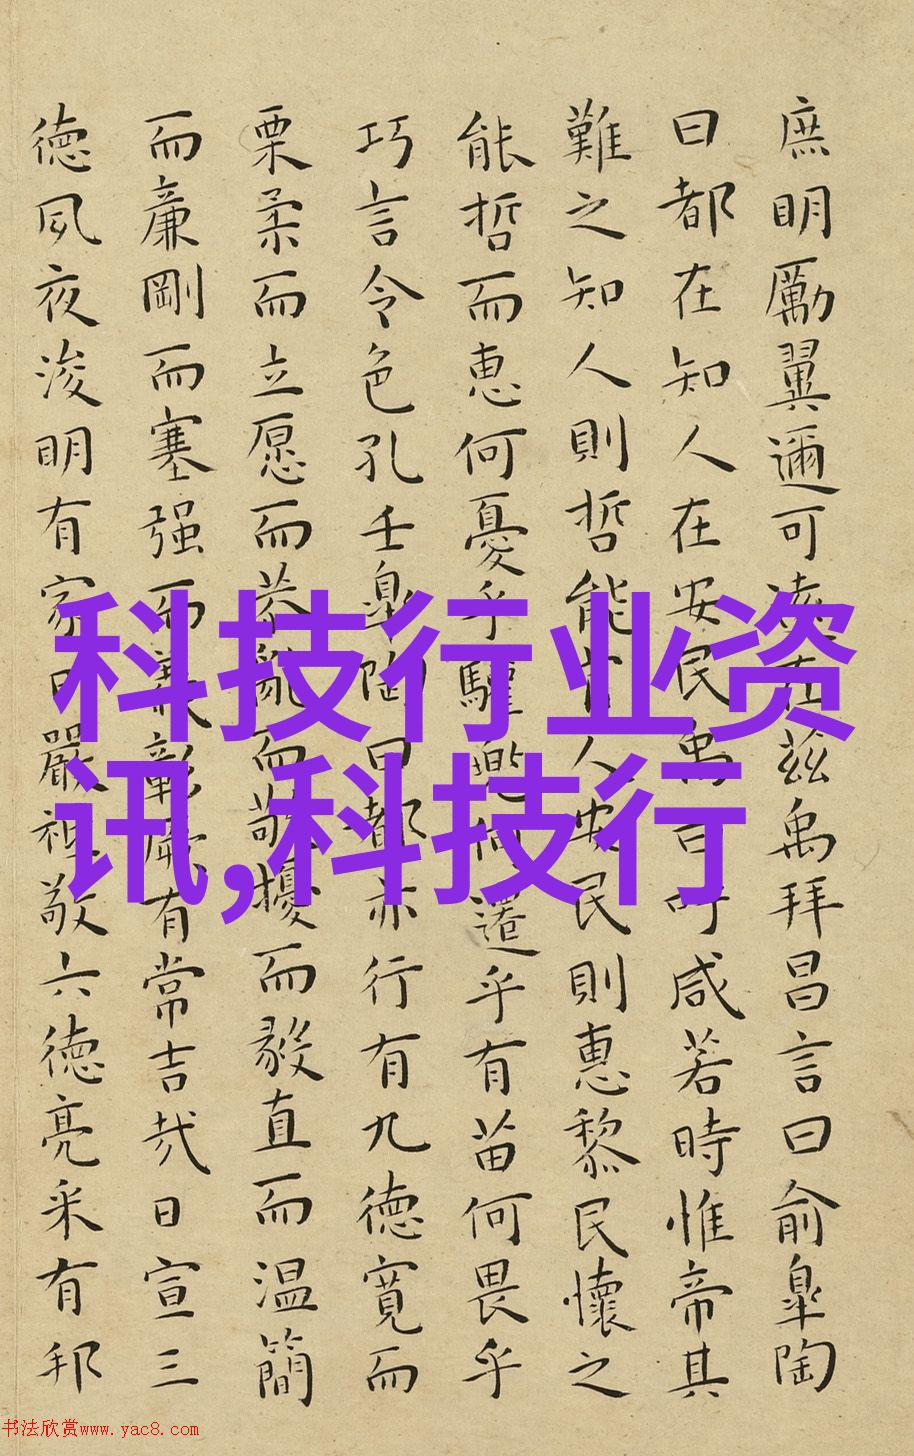 庶明勵翼邇可遠在茲禹拜昌言曰俞皐陶
曰都在知人在安民禹曰吁咸若時惟帝其
難之知人則哲能官人安民則惠黎民懷之
能哲而惠何憂乎驩兜何遷乎有苗何畏乎
巧言令色孔壬皐陶曰都亦行有九德寬而
栗柔而立愿而恭亂而敬擾而毅直而温簡
而廉剛而塞强而義彰厥有常吉哉日宣三
德夙夜浚明有家日嚴祗敬六德亮采有邦
科技行业资
讯,科技行
书法欣赏www.yac8.com